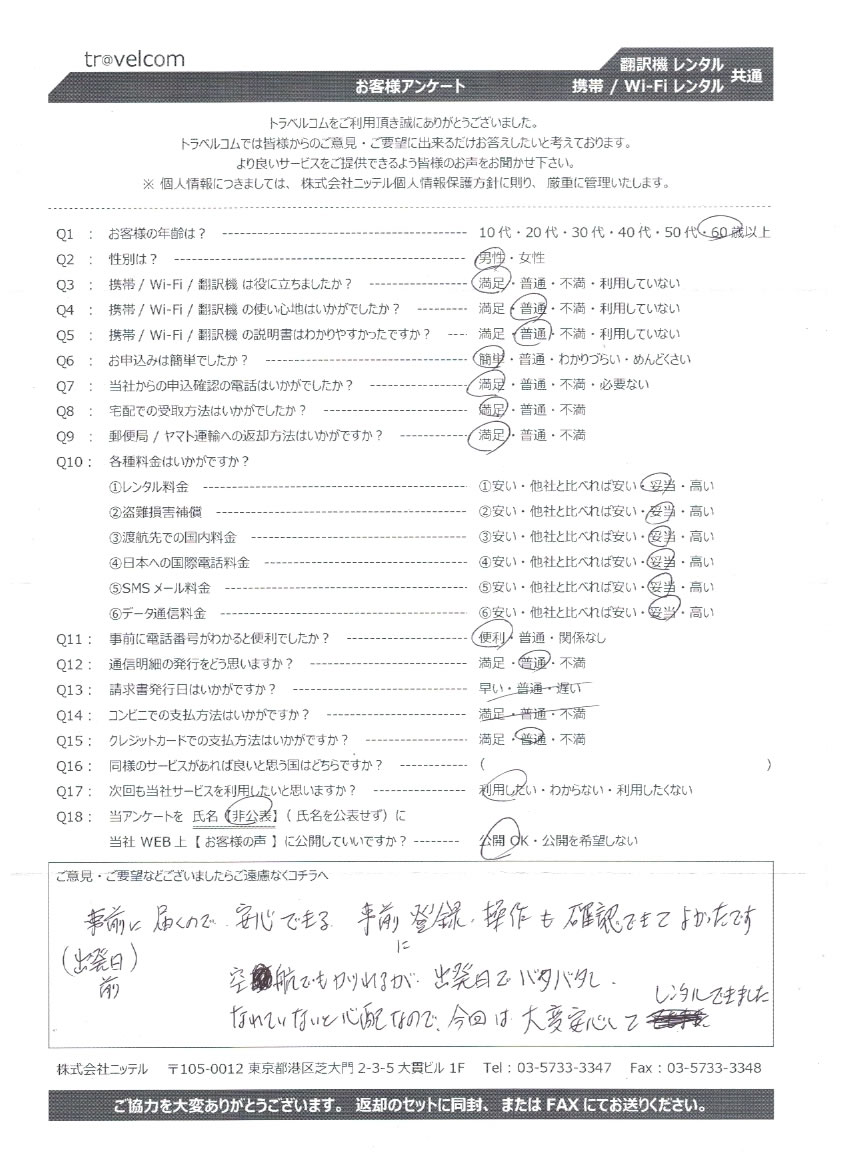 tr@velcom
お客様アンケート
翻訳機 レンタル
携帯 / Wi-Fi レンタル
共通
トラベルコムをご利用頂き誠にありがとうございました。
トラベルコムでは皆様からのご意見・ご要望に出来るだけお答えしたいと考えております。
より良いサービスをご提供できるよう皆様のお声をお聞かせ下さい。
※ 個人情報につきましては、 株式会社ニッテル個人情報保護方針に則り、 厳重に管理いたします。
Q1 : お客様の年齢は? 10代・20代・30代・40代・50代・60歳以上
Q2 : 性別は? 男性・女性
Q3 : 携帯 / Wi-Fi / 翻訳機 は役に立ちましたか? 満足・普通・不満・利用していない
Q4 : 携帯 / Wi-Fi / 翻訳機 の使い心地はいかがでしたか? 満足・普通・不満・利用していない
Q5 : 携帯 / Wi-Fi / 翻訳機 の説明書はわかりやすかったですか? 満足・普通・不満・利用していない
Q6 : お申込みは簡単でしたか? 簡単・普通・わかりづらい・めんどくさい
Q7 : 当社からの申込確認の電話はいかがでしたか? 満足・普通・不満・必要ない
Q8 : 宅配での受取方法はいかがでしたか? 満足・普通・不満
Q9 : 郵便局 / ヤマト運輸への返却方法はいかがですか? 満足・普通・不満
Q10 : 各種料金はいかがですか?
①レンタル料金 ①安い・他社と比べれば安い・妥当・高い
②盗難損害補償 ②安い・他社と比べれば安い・妥当・高い
③渡航先での国内料金 ③安い・他社と比べれば安い・妥当・高い
④日本への国際電話料金 ④安い・他社と比べれば安い・妥当・高い
⑤SMS メール料金 ⑤安い・他社と比べれば安い・妥当・高い
⑥データ通信料金 ⑥安い・他社と比べれば安い・妥当・高い
Q11 : 事前に電話番号がわかると便利でしたか? 便利・普通・関係なし
Q12 : 通信明細の発行をどう思いますか? 満足・普通・不満
Q13 : 請求書発行日はいかがですか? 早い・普通・遅い
Q14 : コンビニでの支払方法はいかがですか? 満足・普通・不満
Q15 : クレジットカードでの支払方法はいかがですか? 満足・普通・不満
Q16 : 同様のサービスがあれば良いと思う国はどちらですか? ( )
Q17 : 次回も当社サービスを利用したいと思いますか? 利用したい・わからない・利用したくない
Q18 : 当アンケートを 氏名【非公表】( 氏名を公表せず) に
当社 WEB 上【 お客様の声 】に公開していいですか? 公開 OK・公開を希望しない
ご意見・ご要望などございましたらご遠慮なくコチラへ
事前に届くので 安心できる 事前に登録、操作も確認できてよかったです
(出発日)前
空航でもかりれるが 出発日でバタバタし、
なれていないと心配なので、今回は大変安心してレンタルできました
株式会社ニッテル 〒105-0012 東京都港区芝大門 2-3-5 大貫ビル 1F Tel : 03-5733-3347 Fax : 03-5733-3348
ご協力を大変ありがとうございます。 返却のセットに同封、 または FAX にてお送りください。